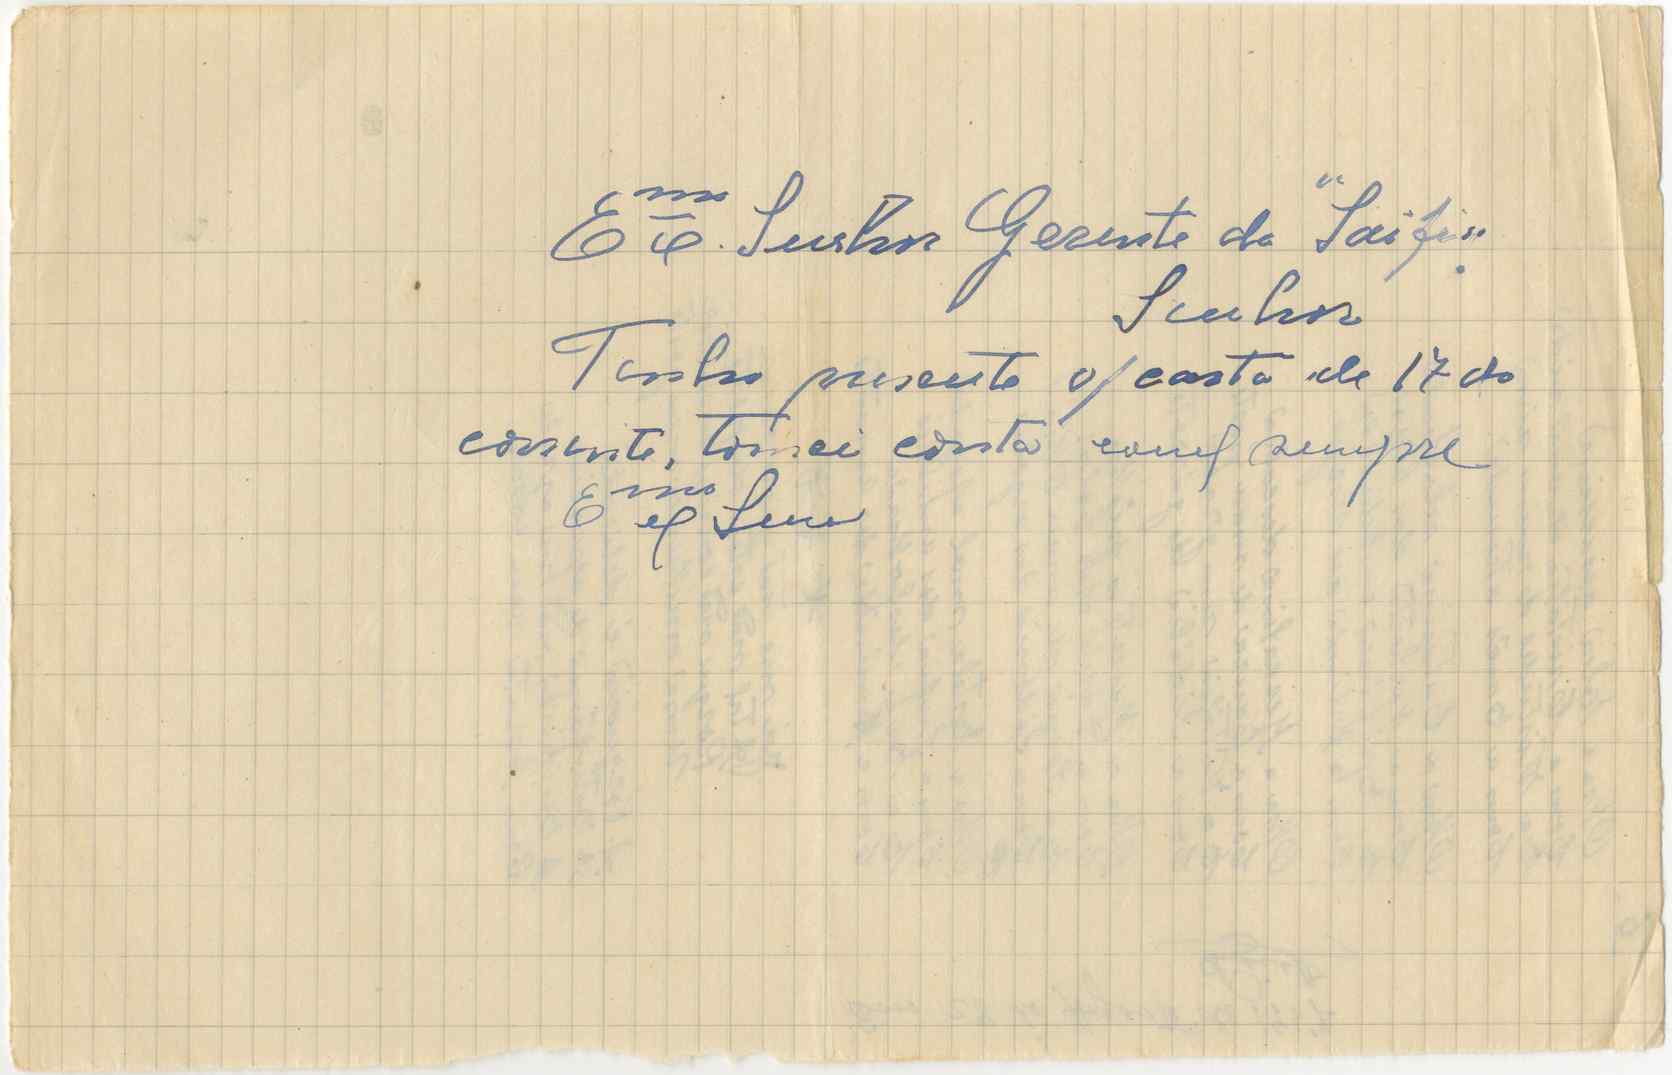 Emo e Senhor Gerente da "Saifi".
Senhor
Tenho presente o/ carta de 17 do
corrente, tomei conta e sempre
Emo e Sen